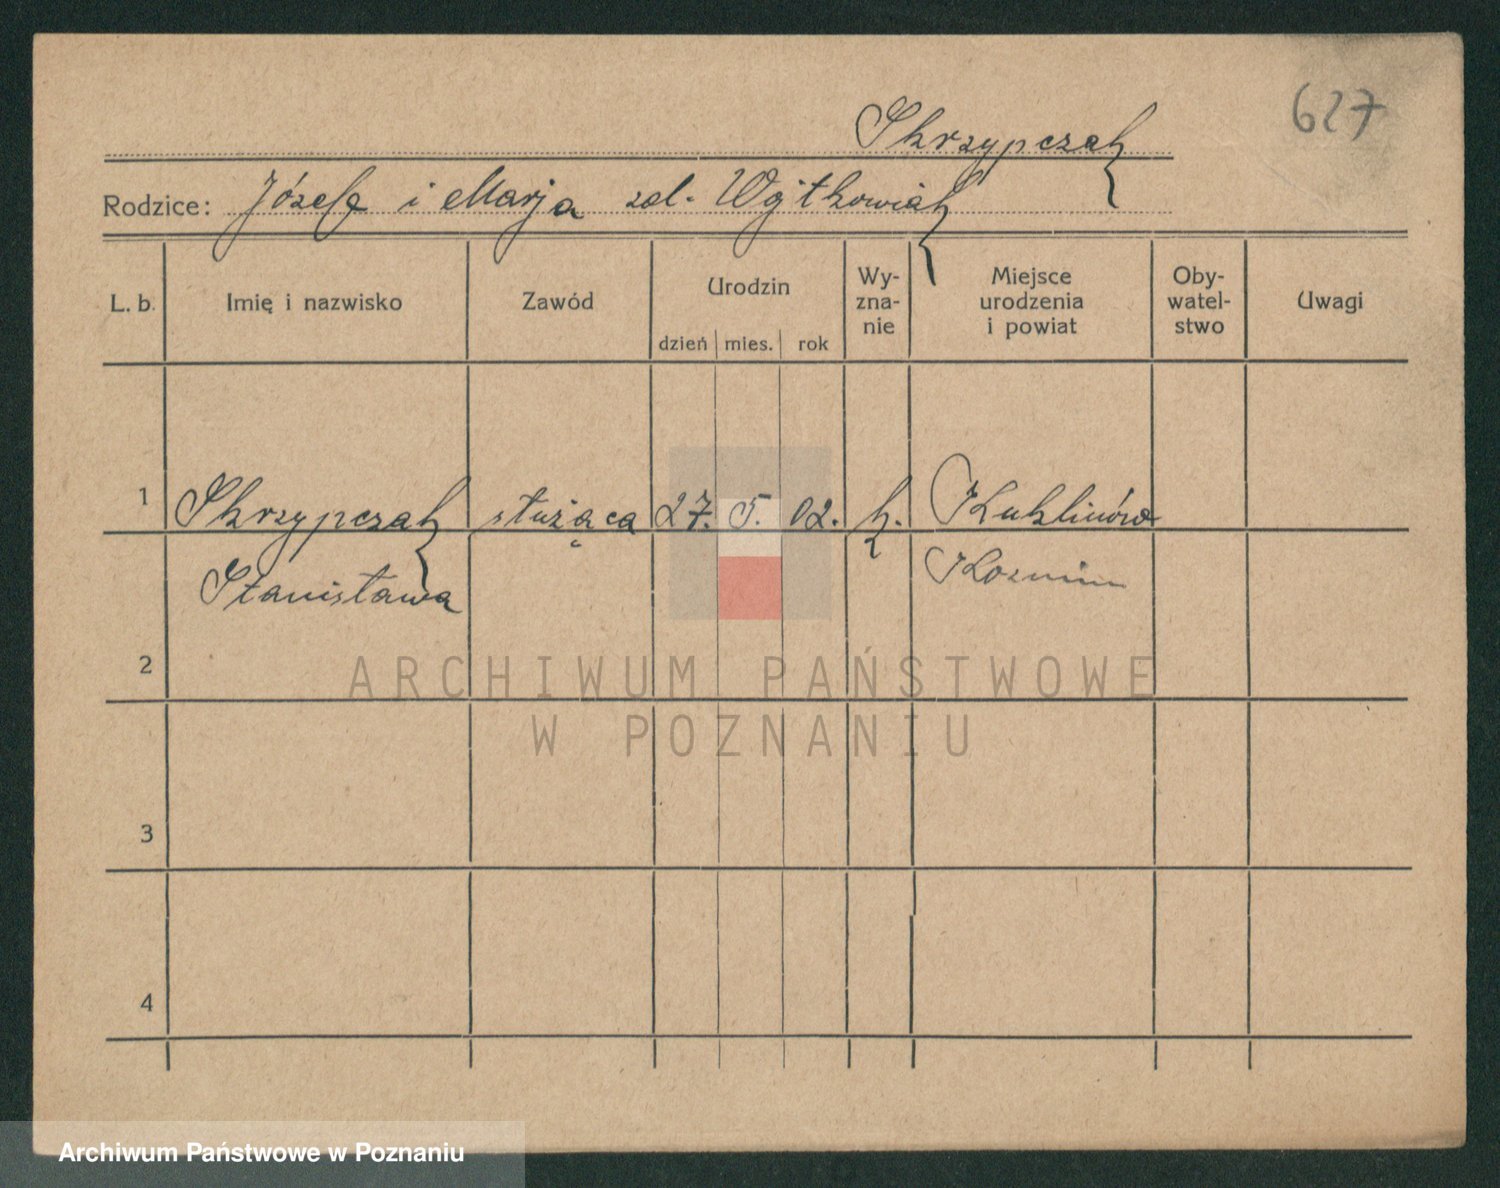 627
Skrzypczak
Rodzice: Józef i Marja zd. Wojtkowiak
L. b. Imię i nazwisko Zawód Urodzin dzień mies. rok Wy-zna-nie Miejsce urodzenia i powiat Oby-watel-stwo Uwagi
1 Skrzypczak służąca 27. 5. 02. k. Kuklinów
Stanisława Kozmin
2
ARCHIWUM PAŃSTWOWE
W POZNANIU
3
4
Archiwum Państwowe w Poznaniu